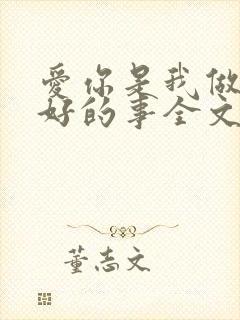 爱你是我做
好的事全文
董志文